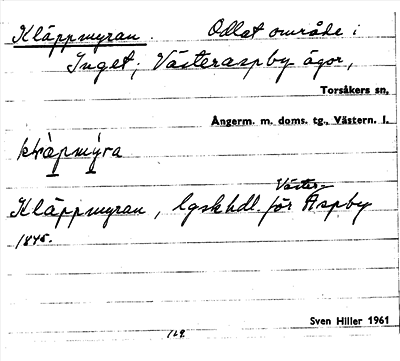 Kläppmyran. Odlat område i
Inget, Västeraspby ägor,
Torsåkers sn,
Ångerm. m. doms. tg., Västern. l.
Kläppmyran, lgskhdl. för Väster-Aspby
1845.
Sven Hiller 1961
129